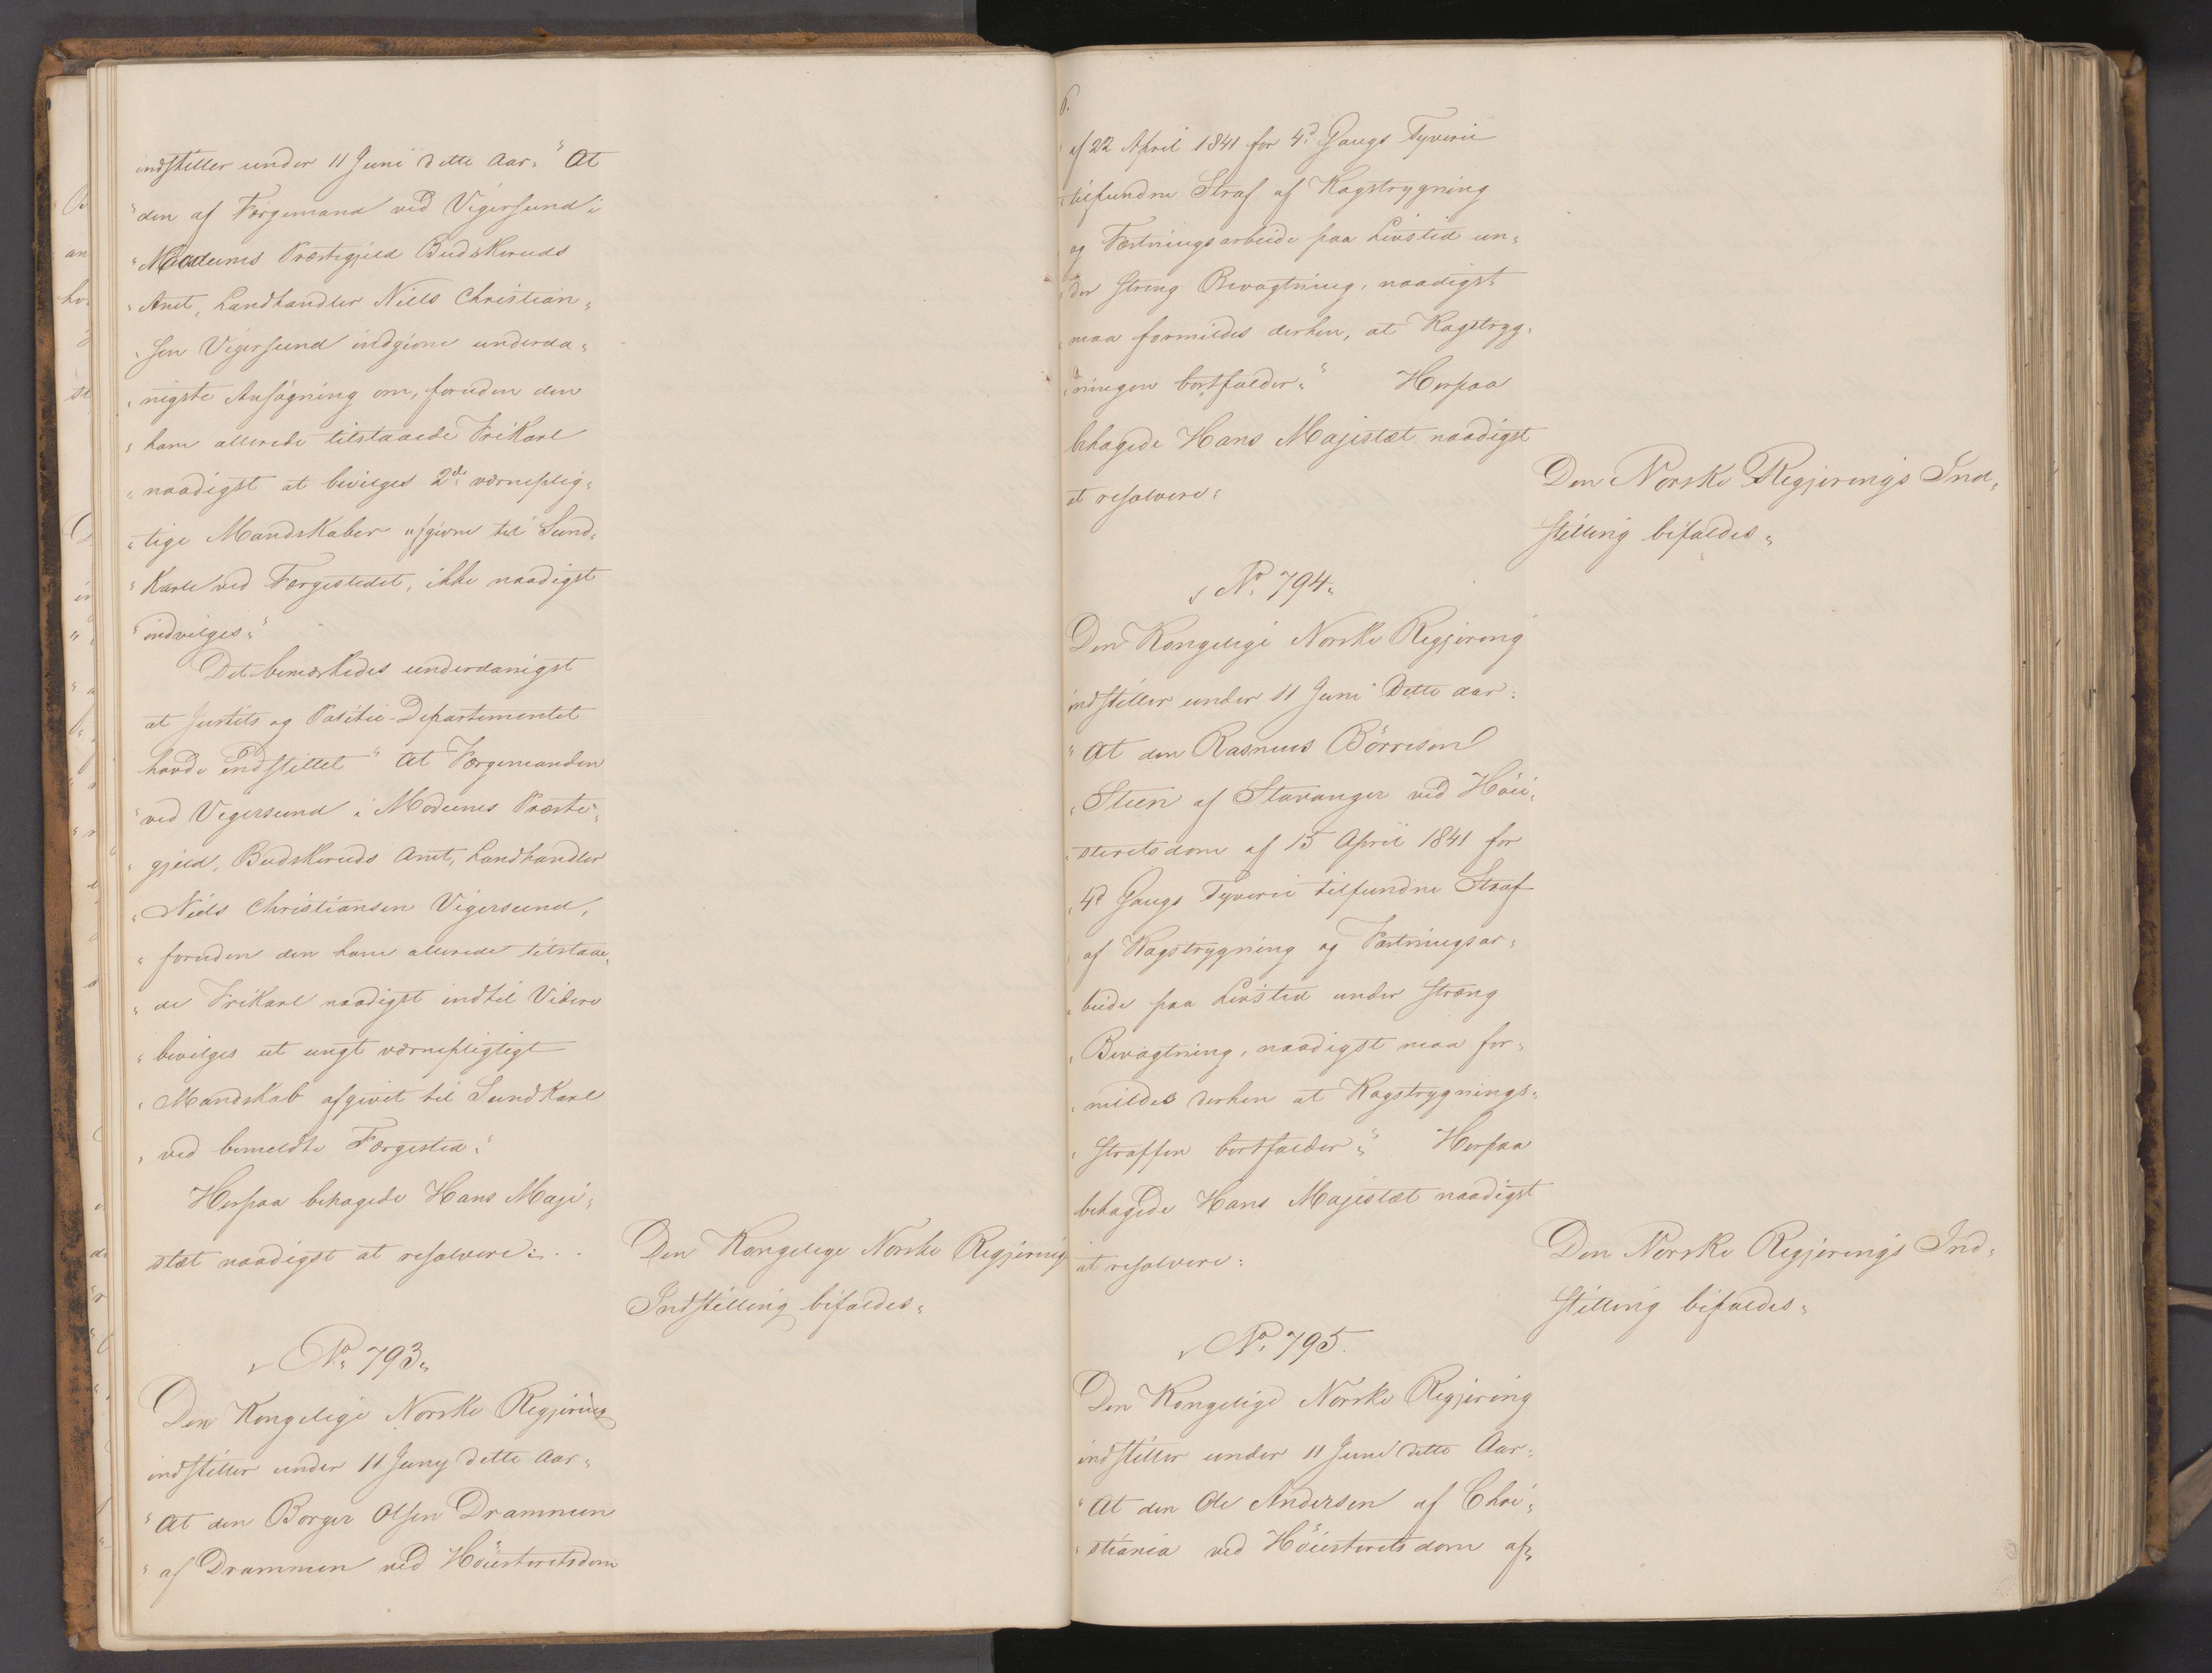 indstiller under 11 Juni dette Aar: "At
"den af Færgemand ved Vigersund i
"Modums Præstegjeld Budskeruds
"Amt, Landhandler Niels Christian=
"sen Vigersund indgivne underda=
"nigste Ansøgning om, foruden den
"ham allerede tilstaaede Frikarl
"naadigst at bevilges 2de værneplig=
"tige Mandskaber afgivne til Sund=
"karle ved Færgestedet, ikke naadigst
"indvilges."
Det bemærkedes underdanigst
at Justits og Politie-Departementet
havde indstillet "At Færgemanden
"ved Vigersund i Modums Præste=
"gjeld, Budskeruds Amt, Landhandler
"Niels Christiansen Vigersund,
"foruden den ham allerede tilstaae=
"de Frikarl naadigst indtil Videre
"bevilges et ungt værnepligtigt
"Mandskab afgivet til Sundkarl
"ved bemeldte Færgested."
Herpaa behagede Hans Maje=
stæt naadigst at resolvere: . .
Den Kongelige Norske Regjerings
Indstilling bifaldes.
No. 793.
Den Kongelige Norske Regjering
indstiller under 11 Juny dette Aar:
"At den Borger Olsen Drammen
"af Drammen ved Høiesteretsdom
"af 22 April 1841 for 4d Gangs Tyverie
"tilfundne Straf af Kagstrygning
"og Fæstningsarbeide paa Livstid un=
"der streng Bevogtning, naadigst
"maa formildes derhen, at Kagstryg=
"ningen bortfalder." Herpaa
behagede Hans Majestæt naadigst
at resolvere:
Den Norske Regjerings Ind=
stilling bifaldes.
No. 794.
Den Kongelige Norske Regjering
indstiller under 11 Juni dette Aar:
"At den Rasmus Börresen
"Steen af Stavanger ved Höie=
"steretsdom af 15 April 1841 for
"4d Gangs Tyverie tilfundne Straf
"af Kagstrygning og Fæstningsar=
"beide paa Livstid under streng
"Bevogtning, naadigst maa for=
"mildes derhen at Kagstrygnings=
"straffen bortfalder." Herpaa
behagede Hans Majestæt naadigst
at resolvere:
Den Norske Regjerings Ind=
stilling bifaldes.
No. 795.
Den Kongelige Norske Regjering
indstiller under 11 Juni dette Aar:
"At den Ole Andersen af Chri=
"stiania ved Höiesterets dom af